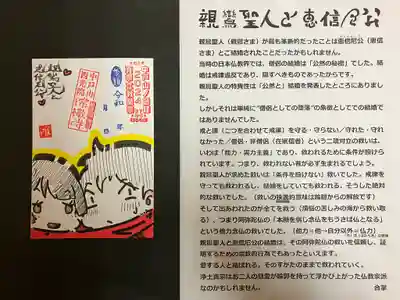 親鸞聖人と恵信尼公
親鸞聖人（親鸞さま）が最も革新的だったことは恵信尼公（恵信
さま）とご結婚されたことだったかもしれません。
当時の日本仏教界では、僧侶の結婚は「公然の秘密」でした。結
婚は戒律違反であり、隠すべきものであったからです。
親鸞聖人の特異性は「公然と」結婚を発表したところにありまし
た。
しかしそれは単純に“僧侶としての堕落”の象徴としての結婚で
はありませんでした。
戒と律（二つを合わせて戒律）を守る・守らない／守れた・守れ
なかった／僧侶・非僧侶（在家信者）という二項対立の救いは、
いわば「能力・実力主義」であり、救われるために条件が設けら
れています。つまり、救われない者が必ず生まれるでしょう。
親鸞聖人が求めた救いは「条件を設けない」救いでした。戒律を
守っても救われるし、結婚をしていても救われる、そうした絶対
的な救いでした。（救いの独善的意味は階級からの解放です）
そして出あわれたのが全てを救う（煩悩の苦しみの海から救い取
る）、つまり阿弥陀仏の「本願を信じ念仏をもうさば仏となる」
という他力念仏の救いでした。（他力＝他→自分以外→仏力）
親鸞聖人と恵信尼公の結婚は、その阿弥陀仏の救いを信順し、証
明するための宗教的行為でもあったといえます。
愛する人と結ばれると、そのすがたのままで救われていく。
浄土真宗はお二人の銀盃が輪郭を持って浮かび上がった仏教宗派
なのかもしれません。
合掌
親鸞聖人と
恵信尼公
令和
年
月
日
2024